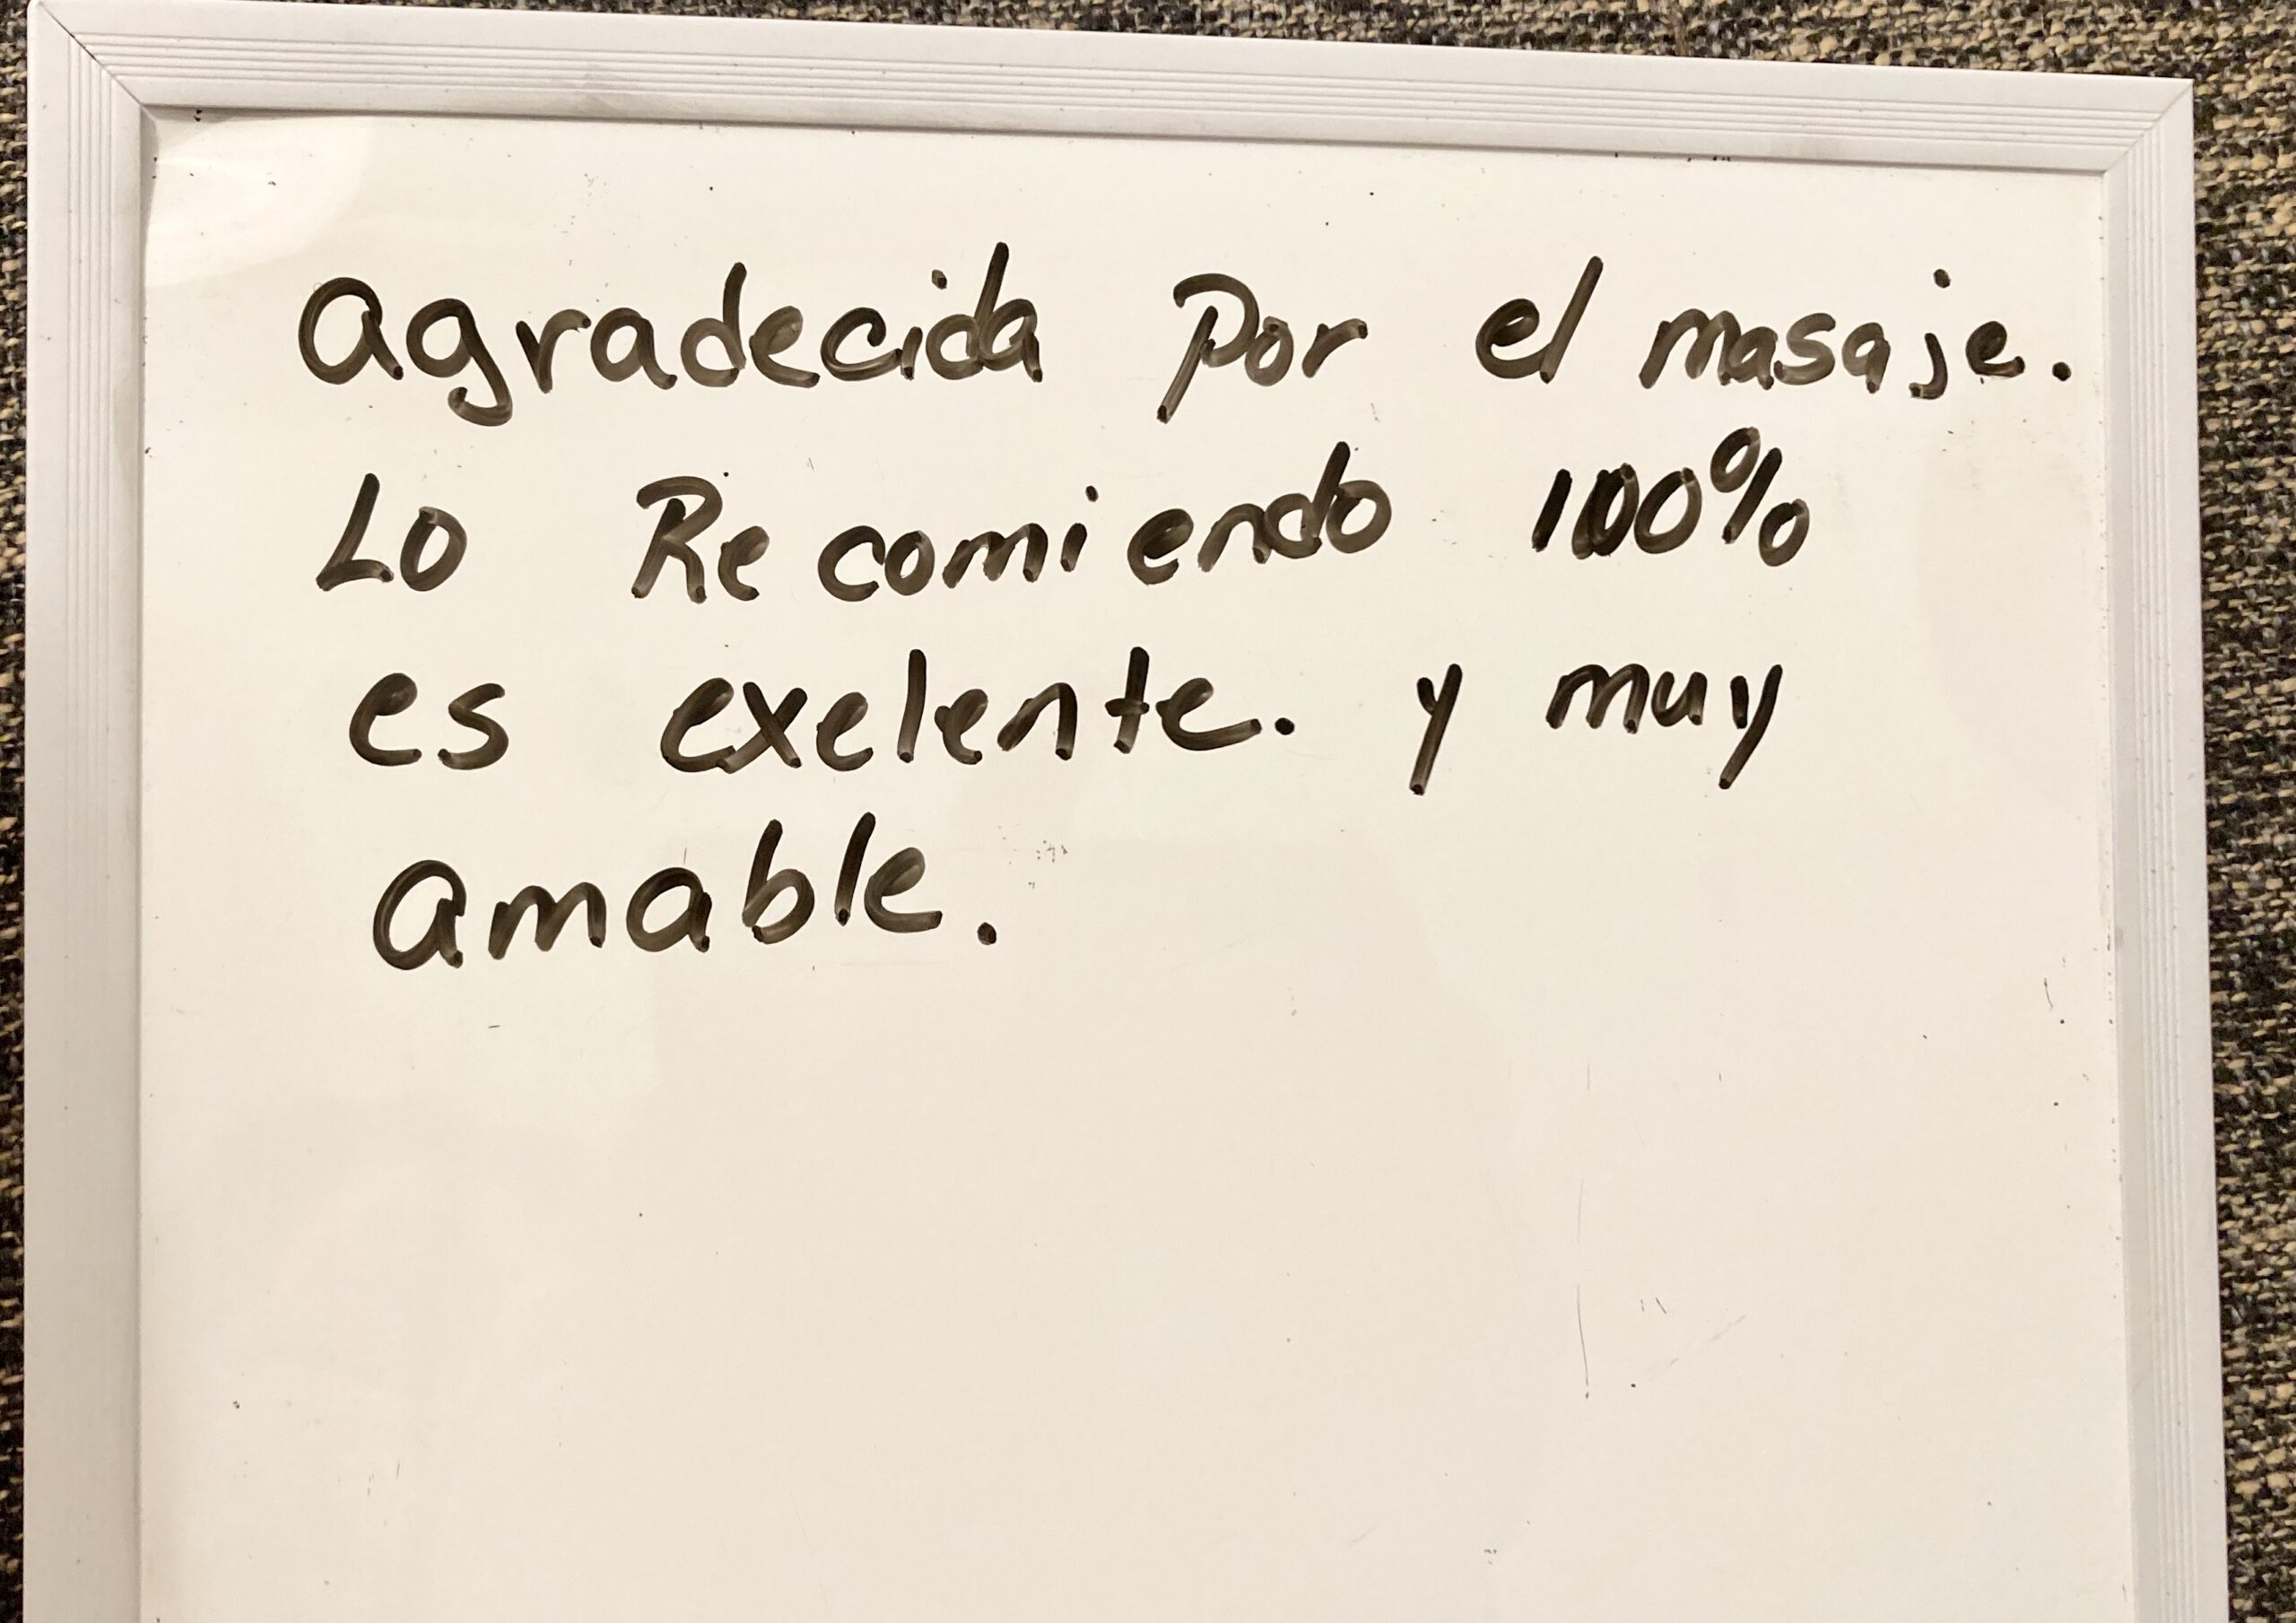 agradecida por el masaje.
Lo Recomiendo 100%
es exelente. y muy
amable.